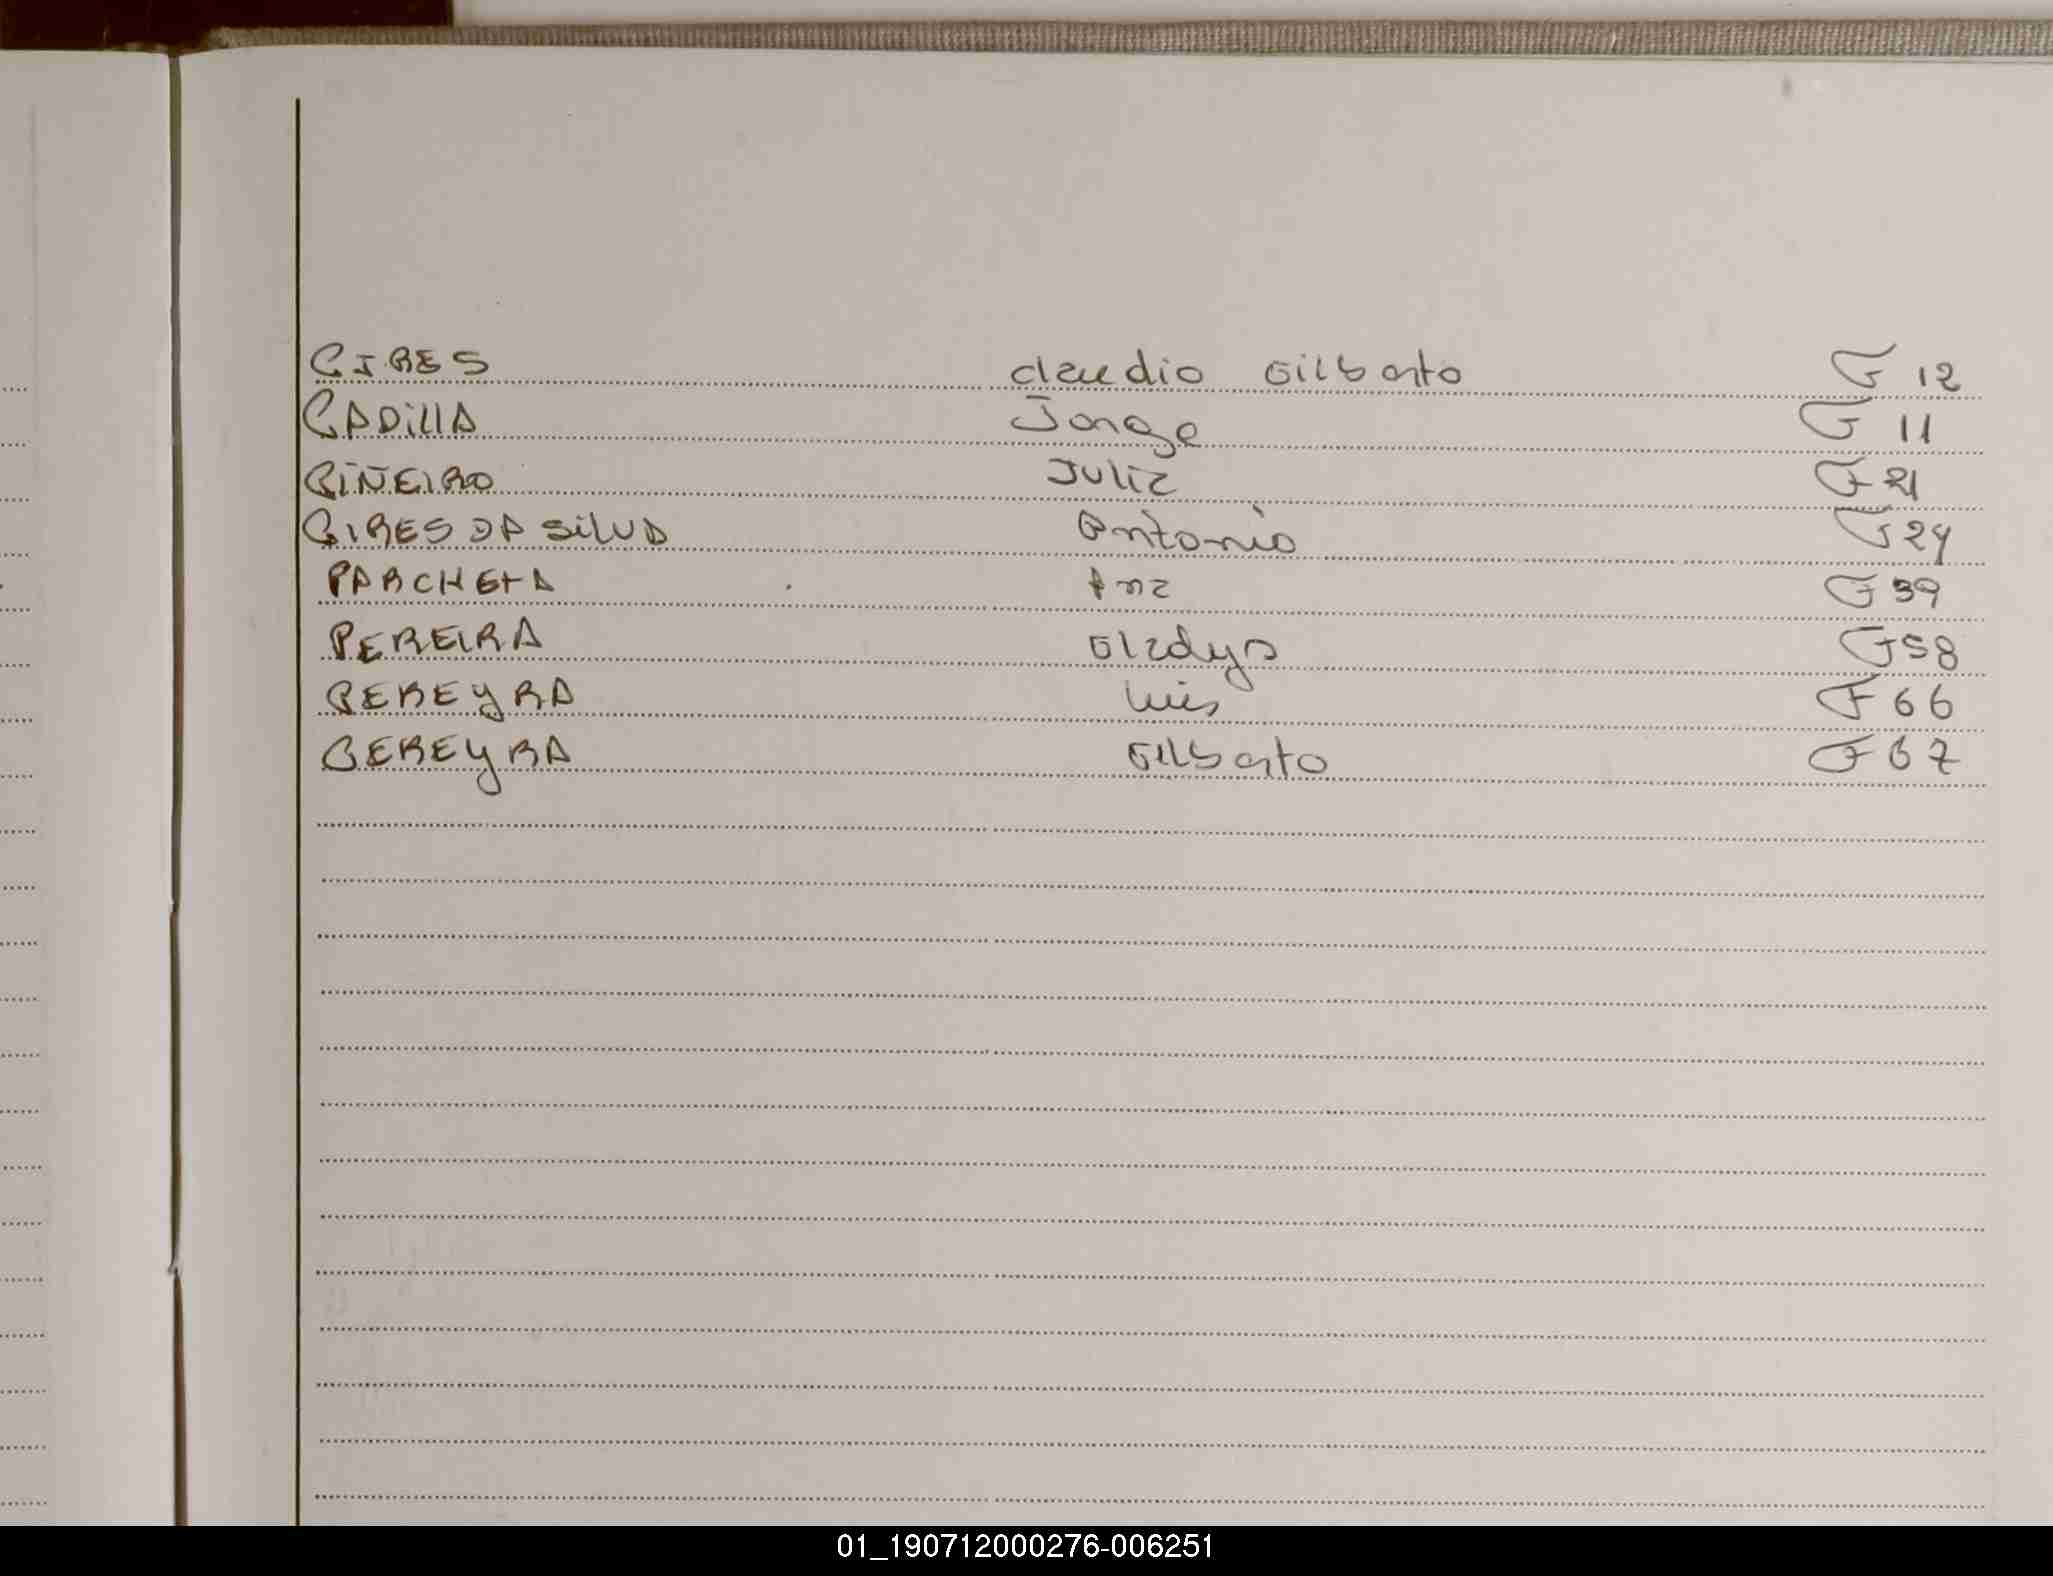 PIRES Claudio Gilberto F 12
PADILLA Jorge F 11
PIÑEIRO Julia F 21
PIRES DA SILVA Antonio F 24
PARCHETA Ana F 39
PEREIRA Gladys F 58
PEREYRA Luis F 66
PEREYRA Gilberto F 67
01_190712000276-006251